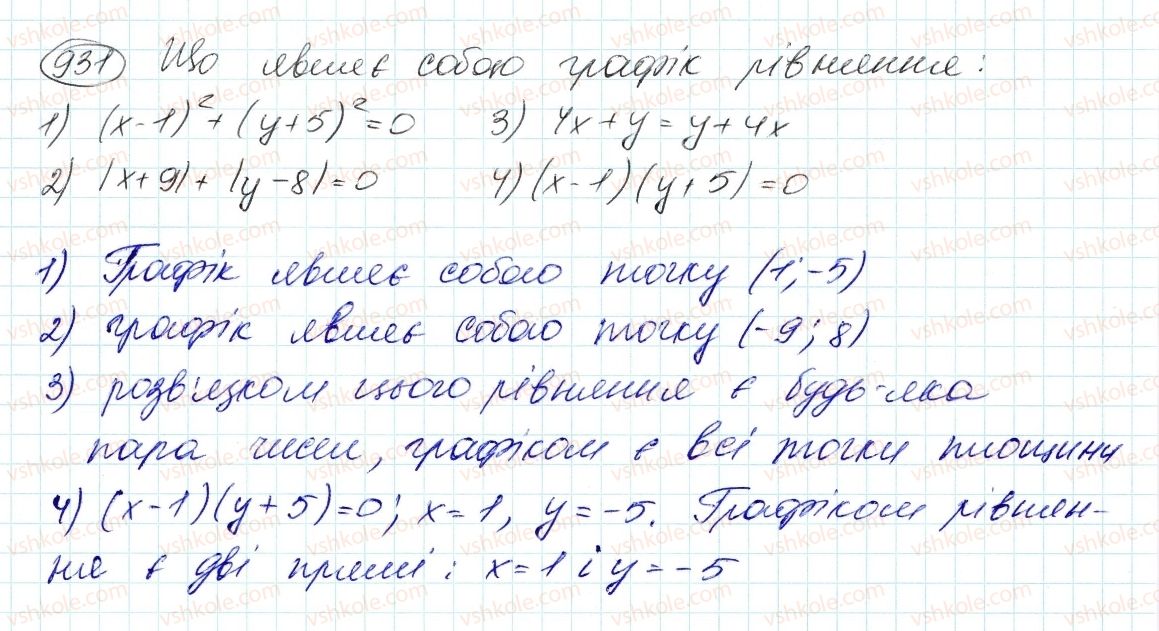 931 Що являє собою графік рівняння:
1) (x-1)²+(y+5)²=0 3) 4x+y=y+4x
2) |x+9|+|y-8|=0 4) (x-1)(y+5)=0
1) Графік являє собою точку (1;-5)
2) графік являє собою точку (-9;8)
3) розв'язком цього рівняння є будь-яка
пара чисел, графіком є всі точки площини
4) (x-1)(y+5)=0; x=1, y=-5. Графіком рівнян-
ня є дві прямі: x=1 і y=-5